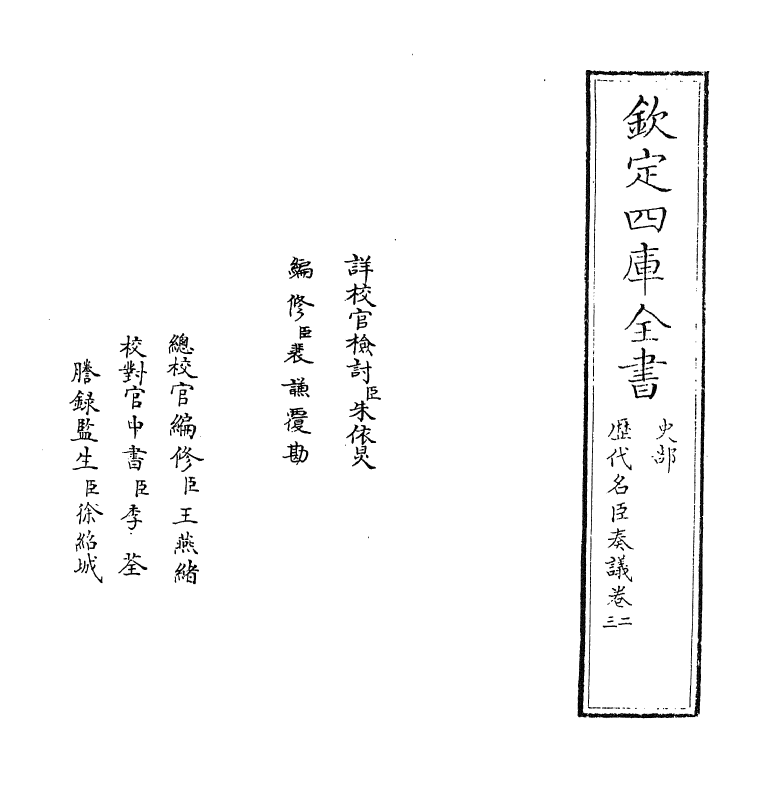 欽定四庫全書
史部
歷代名臣奏議卷二三
詳校官檢討臣朱依炅
編修臣裴謙覆勘
總校官編修臣王燕緒
校對官中書臣李荃
謄録監生臣徐紹城